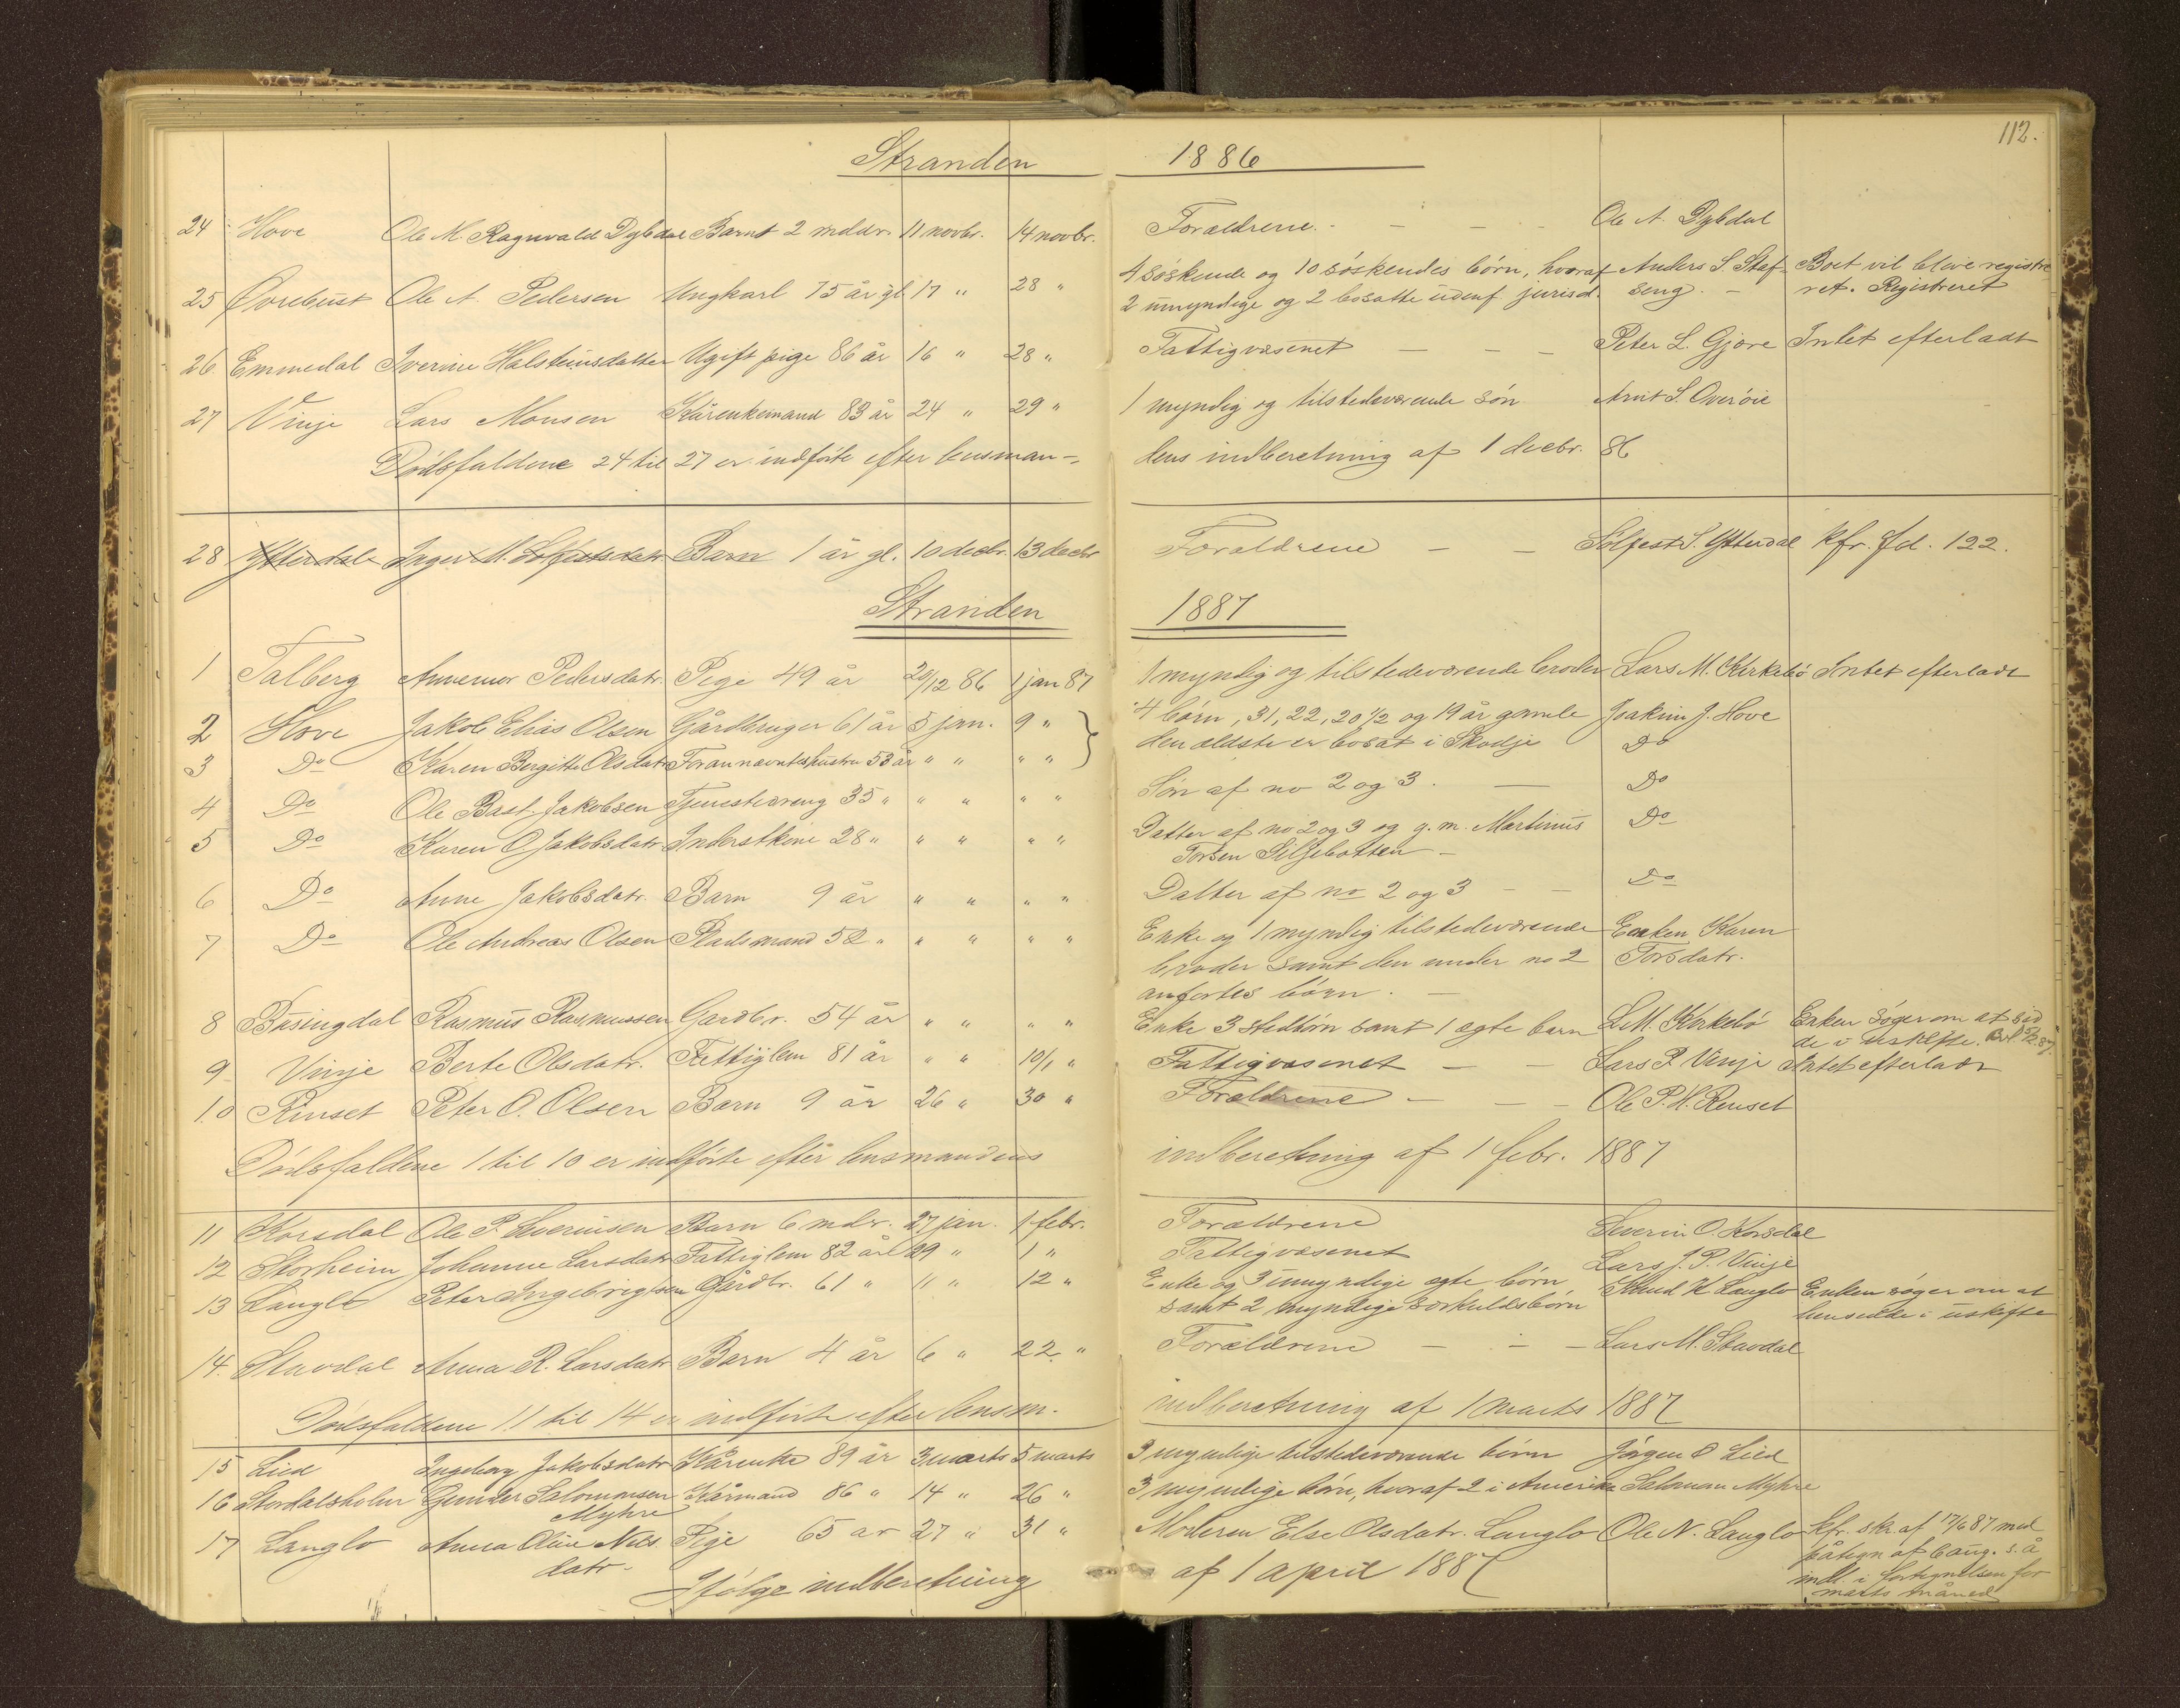 112.
Stranden 1886
24 Hove Ole M. Ragnvald Dybdal Barn 2 mddr. 11 novbr. 14 novbr. Forældrene - - - - Ole A. Dybdal
25 Øvrebust Ole A. Pedersen Ungkarl 75 år gl. 17 " 28 " 4 söskende og 10 söskendes börn, hvoraf Anders S. Staf- Boet vil blive registre
2 umyndige og 2 bosatte udenf. jurisd. seng. - ret. Registreret
26 Emmedal Iverine Halsteinsdatter Ugift pige 86 år 16 " 28 " Fattigvæsenet - - - Peter L. Gjære Intet efterladt
27 Vinje Lars Monsen Kårenkemand 83 år 24 " 29 " 1 myndig og tilstedeværende sön Arnt S. Overöie
Dödsfaldene 24 til 27 er indförte efter lensman- dens indberetning af 1 decbr. 86
28 Ytterdal Inger M. Solfestsdatr. Barn 1 år gl. 10 decbr. 13 decbr Forældrene - - Sölfest S. Ytterdal kfr. fol. 122.
Stranden 1887
1 Talberg Annemor Pedersdatr. Pige 49 år 28/12 86 1 jan 87 1 myndig og tilstedeværende broder Lars M. Kirkebö Intet efterladt
2 Hove Jakob Elias Olsen Gårdbruger 61 år 5 jan. 9 " 4 börn, 31, 22, 20 1/2 og 19 år gamle Joakim J. Hove
3 Do Karen Bergitte Olsdatr. Forannævntes hustru 53 år " " " " den ældste er bosat i Skodje Do
4 Do Ole Bast. Jakobsen Tjenestedreng 35 " " " " " Sön af no 2 og 3. - Do
5 Do Karen O. Jakobsdatr. Inderstkone 28 " " " " " Datter af no 2 og 3 og g. m. Martinus Do
Torsen Siljebotten -
6 Do Anne Jakobsdatr. Barn 9 år " " " " Datter af no 2 og 3 - - Do
7 Do Ole Andreas Olsen Pladsmand 52 " " " " " Enke og 1 myndig tilstedeværende Enken Karen
broder samt den under no 2 Torsdatr.
anförtes börn. -
8 Busingdal Rasmus Rasmussen Gårdbr. 54 år " " " " Enke 3 stedbörn samt 1 ægte barn L. M. Kirkebö Enken söger om at sid
de i uskifte.
9 Vinje Berte Olsdatr. Fattiglem 81 år " " 10/1 " Fattigvæsenet - - Lars P. Vinje Intet efterladt
10 Rinset Peter O. Olsen Barn 9 år 26 " 30 " Forældrene - - - Ole P. H. Renset
Dödsfaldene 1 til 10 er indförte efter lensmandens indberetning af 1 febr. 1887
11 Korsdal Ole P. Severinsen Barn 6 mdr. 27 jan. 1 febr. Forældrene Severin O. Korsdal
12 Storheim Johanne Larsdatr Fattiglem 82 år 29 " 1 " Fattigvæsenet Lars J. P. Vinje
13 Langlo Peter Ingebrigtsen Gårdbr. 61 " 11 " 12 " Enke og 3 umyndige ægte börn Knud K Langlo Enken söger om at
samt 2 myndige særkuldsbörn hensidde i uskifte
14. Stavdal Anna R. Larsdatr Barn 4 år 6 " 22. " Forældrene - - - Lars M. Stavdal
Dödsfaldene 11 til 14 er indförte efter lensm. indberetning af 1 marts 1887
15 Lied Ingeborg Jakobsdatr Kårenke 89 år 3 marts 5 marts 3 myndige tilstedeværende börn Jörgen O Lied
16 Stordalsholm Gunder Salomonsen Kårmand 86 " 14 " 26 " 3 myndige börn, hvoraf 2 i Amerika Salomon Myhre
Myhre
17 Langlo Anna Oline Nils Pige 65 år 27 " 31 " Moderen Else Olsdatr. Langlo Ole N. Langlo kfr. skr. af 17/6 87 med
datr. påtegn af 6 aug. s. å
Ifölge indberetning af 1 april 1887 indt. i fortegnelsen for
marts måned